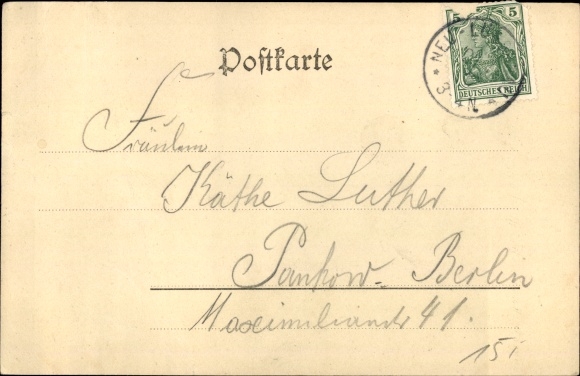 Postkarte
5 5
DEUTSCHES REICH
Fräulein
Käthe Luther
Pankow-Berlin
Maximilianstr 41.
151